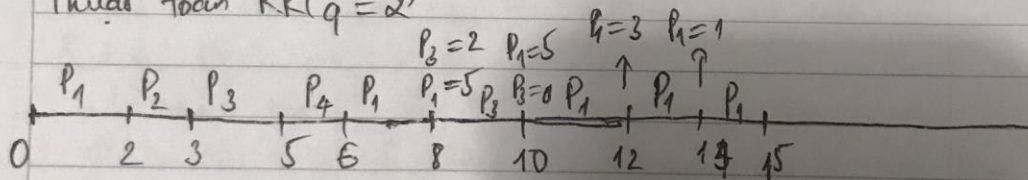 Thuật toán RR (q = 2
P3 = 2 P1 = 5 P1 = 3 P1 = 1
P1 P2 P3 P4 P1 P1 = 5 P3 P3 = 0 P1 P1 P1
0 2 3 5 6 8 10 12 14 15